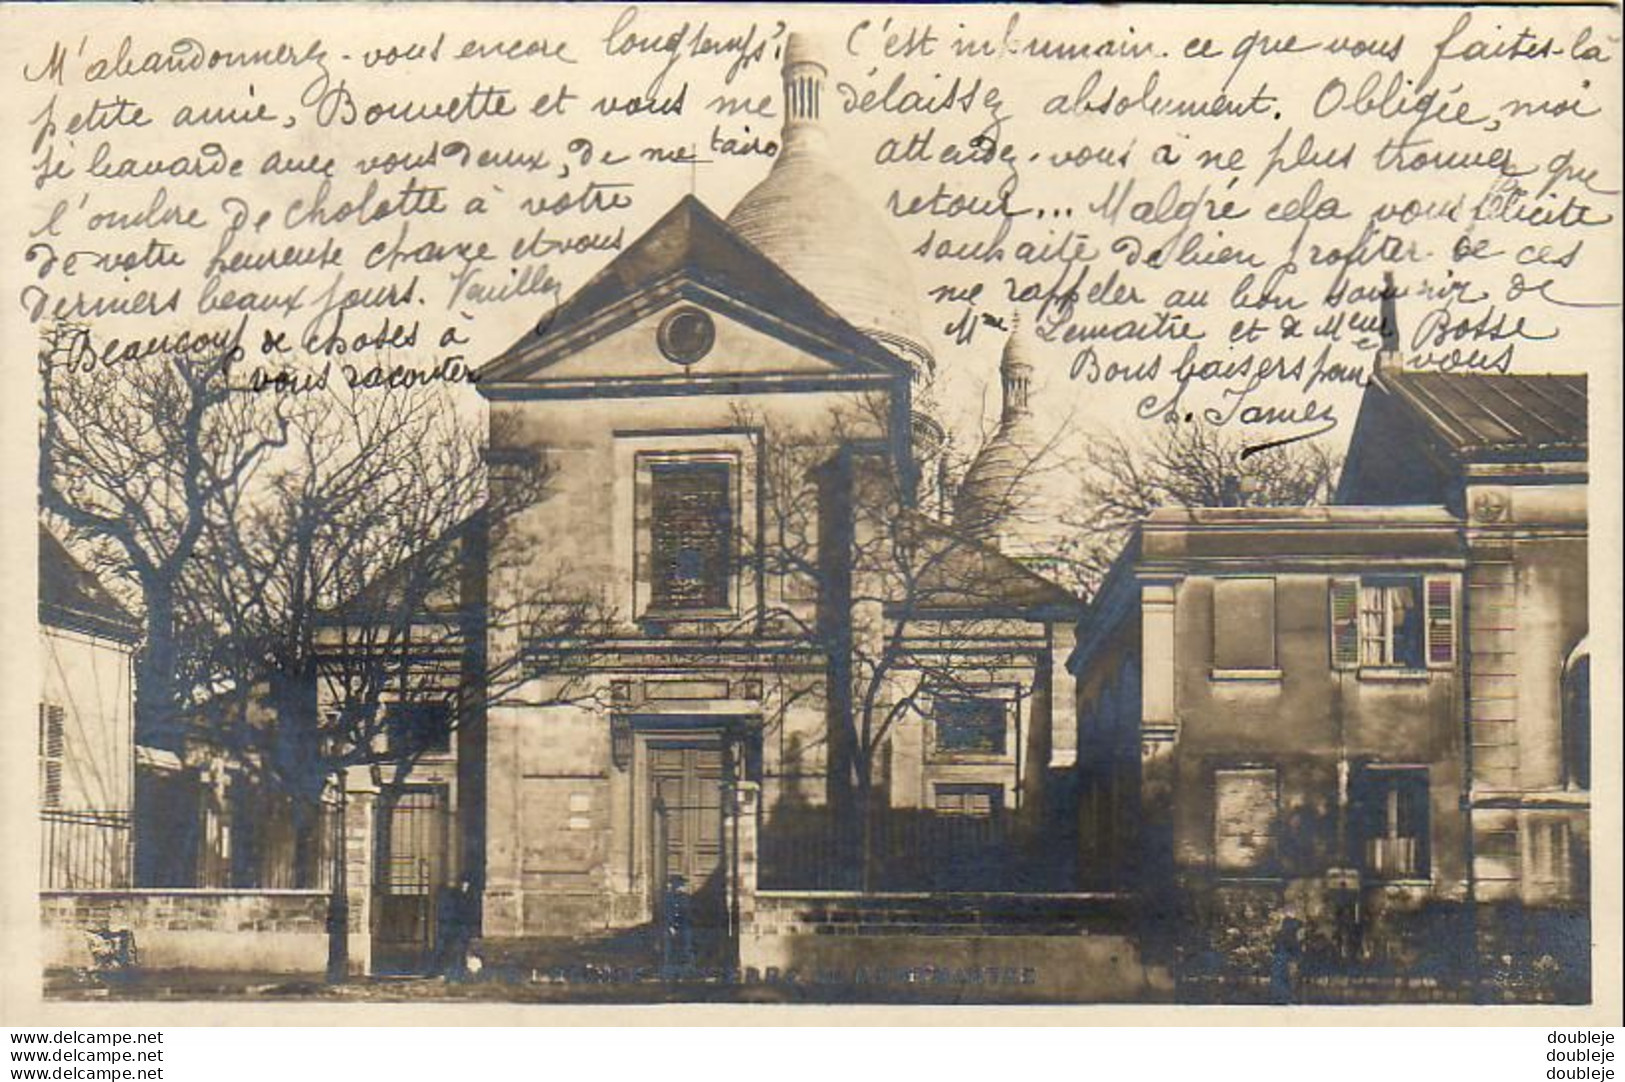 M'abandonnerez-vous encore longtemps? C'est inhumain ce que vous faites-là
petite amie, Bouvette et vous me délaissez absolument. Obligée, moi
si bavarde avec vous deux, de me taire attendez-vous à ne plus trouver que
l'ombre de Cholotte à votre retour... Malgré cela vous félicite
de votre heureuse chance et vous souhaite de bien profiter de ces
derniers beaux jours. Veuillez me rappeler au bon souvenir de
Mme Lemaitre et de Bosse
Beaucoup de choses à
vous raconter
Bons baisers pour vous
Ch.
PARIS
MONTMARTRE
www.delcampe.net
www.delcampe.net
www.delcampe.net
doubleje
doubleje
doubleje